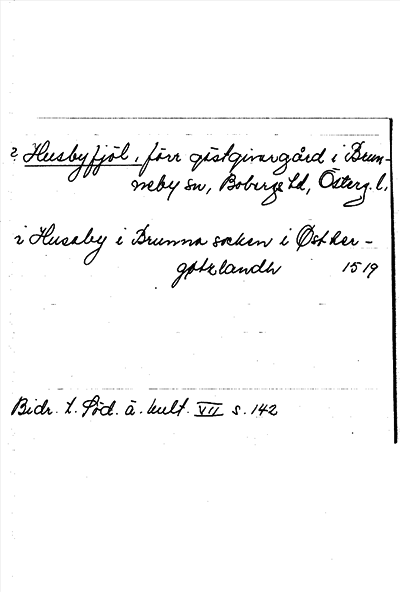 ? Husbyfjöl, förr gästgivaregård i Brun-
neby sn, Bobergs hd, Österg. l.
i Husaby i Brunna socken i Østher-
gøtzlandh 1519
Bidr. t. Söd. ä. kult. VII s. 142